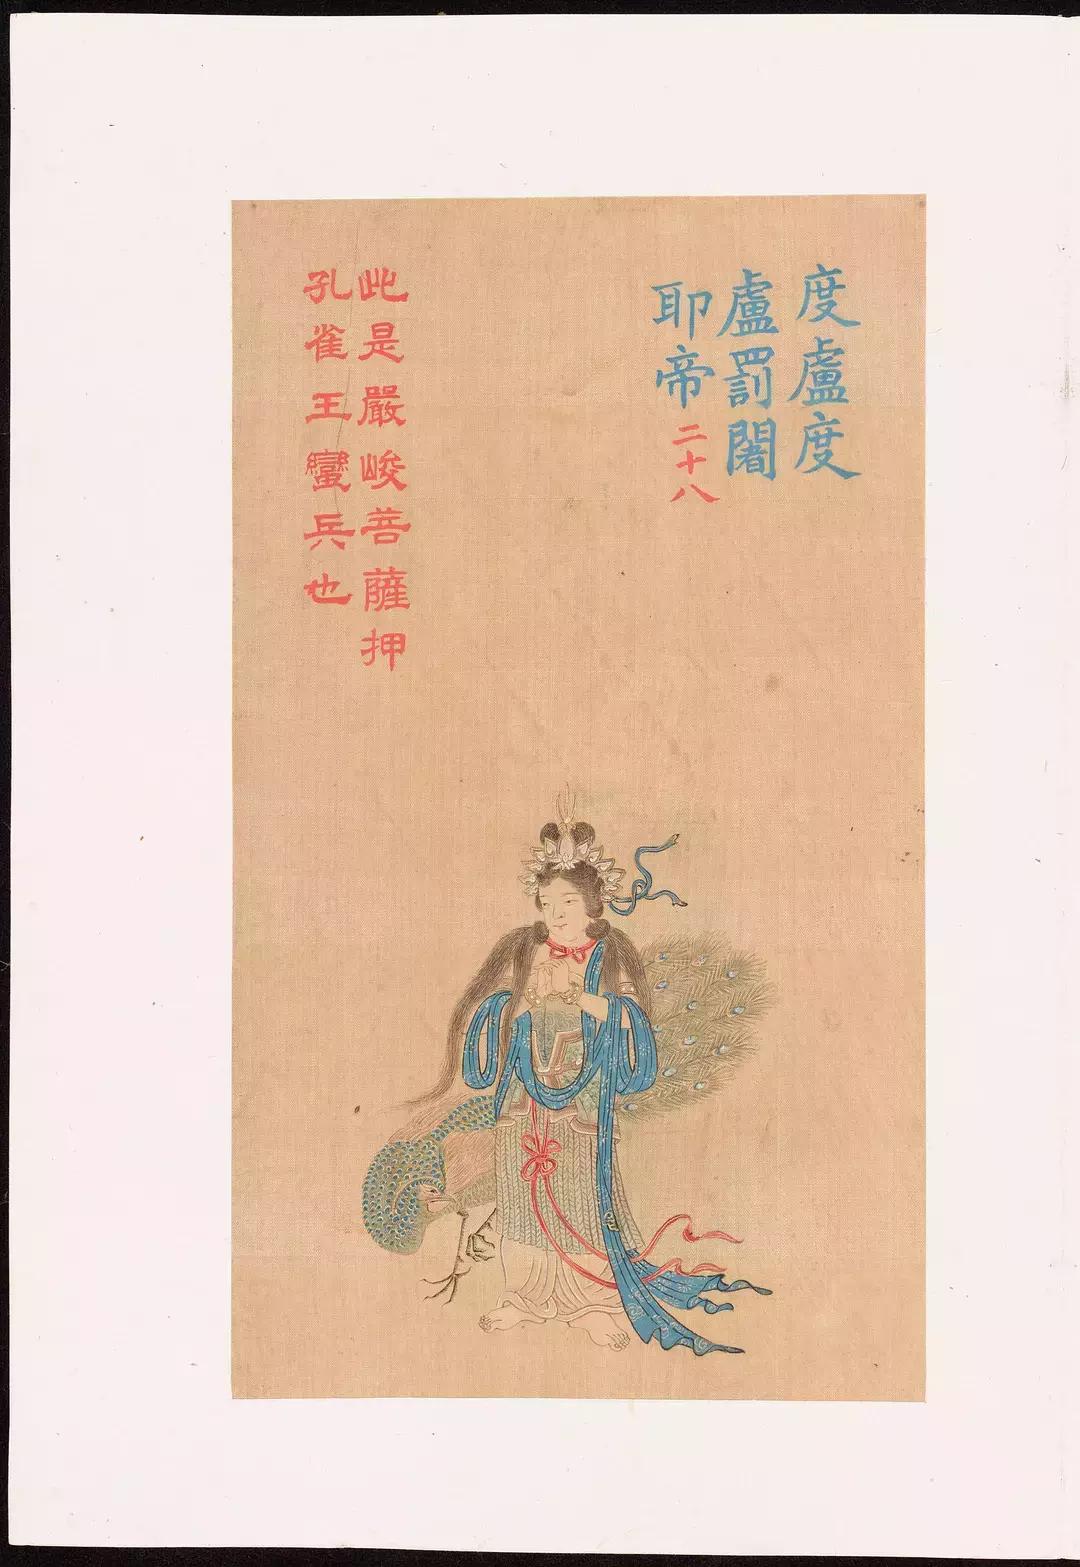 度盧度
盧罰闍
耶帝二十八
此是嚴峻菩薩押
孔雀王蠻兵也